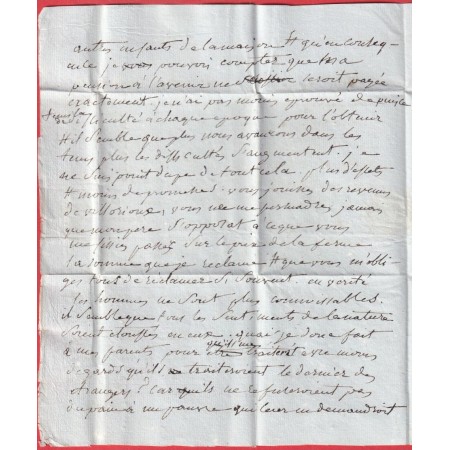 autres enfants de la maison # qu'en conseq-
uence je pouvois compter que ma
pension à l'avenir me seroit payée
exactement. je n'ai pas moins éprouvé depuis ce
difficulté à chaque epoque pour l'obtenir
# il semble que plus nous avancons dans les
tems plus les difficultés s'augmentent. je
ne suis point dupe de tout cela. plus d'effets
# moins de promesses. vous jouisses des revenus
de vous ne me persuaderés jamais
que mon pere s'opposat à ce que vous
me fissies passer sur le prix de la ferme
la somme que je reclame # que vous m'obli-
gés tous de réclamer si souvent. en verité
les hommes ne sont plus connoissables.
il semble que tous les sentiments de la nature
soient étouffés en eux. quai je donc fait
à mes parents pour qu'ils me traitent avec moins
d'egards qu'ils traiteroient le dernier des
etrangers? car ils ne refuseroient pas
du pain à un pauvre qui leur en demanderoit